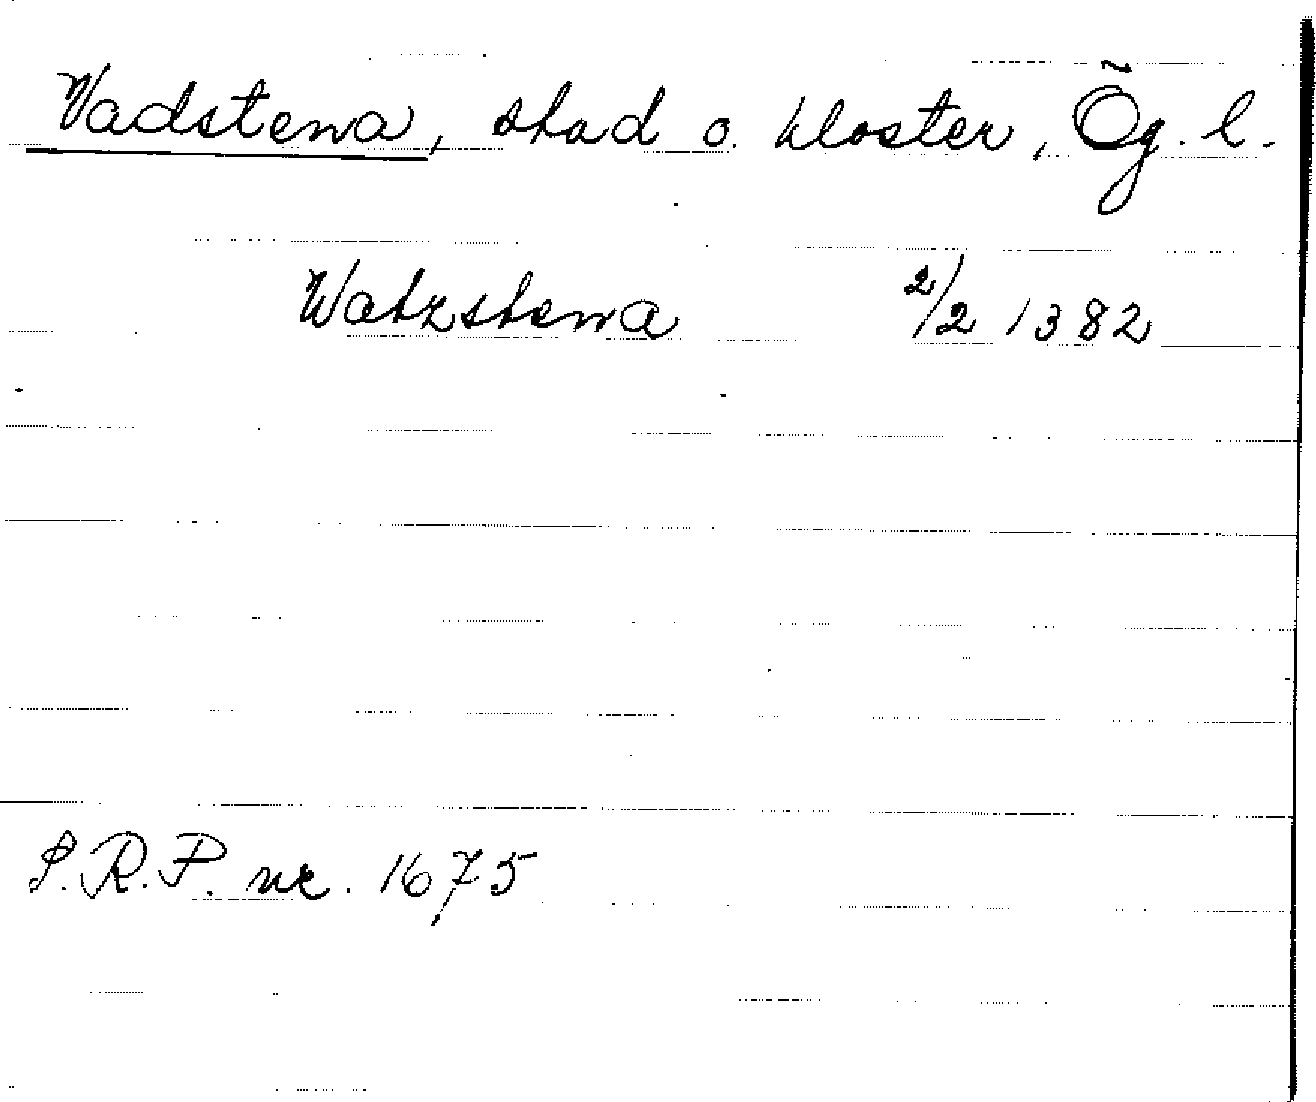 Vadstena, stad o. kloster, Ög. l.
Watzstena 2/2 1382
S.R.P. nr. 1675